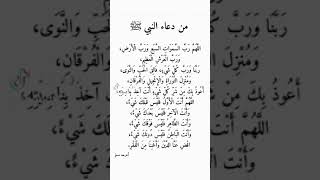 من دعاء النبي ﷺ
اللَّهُمَّ رَبَّ السَّمَوَاتِ السَّبْعِ وَرَبَّ الْأَرْضِ،
وَرَبَّ الْعَرْشِ الْعَظِيمِ،
رَبَّنَا وَرَبَّ كُلِّ شَيْءٍ، فَالِقَ الْحَبِّ وَالنَّوَى،
وَمُنْزِلَ التَّوْرَاةِ وَالْإِنْجِيلِ وَالْفُرْقَانِ،
أَعُوذُ بِكَ مِنْ شَرِّ كُلِّ شَيْءٍ أَنْتَ آخِذٌ بِنَاصِيَتِهِ،
اللَّهُمَّ أَنْتَ الْأَوَّلُ فَلَيْسَ قَبْلَكَ شَيْءٌ،
وَأَنْتَ الْآخِرُ فَلَيْسَ بَعْدَكَ شَيْءٌ،
وَأَنْتَ الظَّاهِرُ فَلَيْسَ فَوْقَكَ شَيْءٌ،
وَأَنْتَ الْبَاطِنُ فَلَيْسَ دُونَكَ شَيْءٌ،
اقْضِ عَنَّا الدَّيْنَ وَأَغْنِنَا مِنَ الْفَقْرِ.